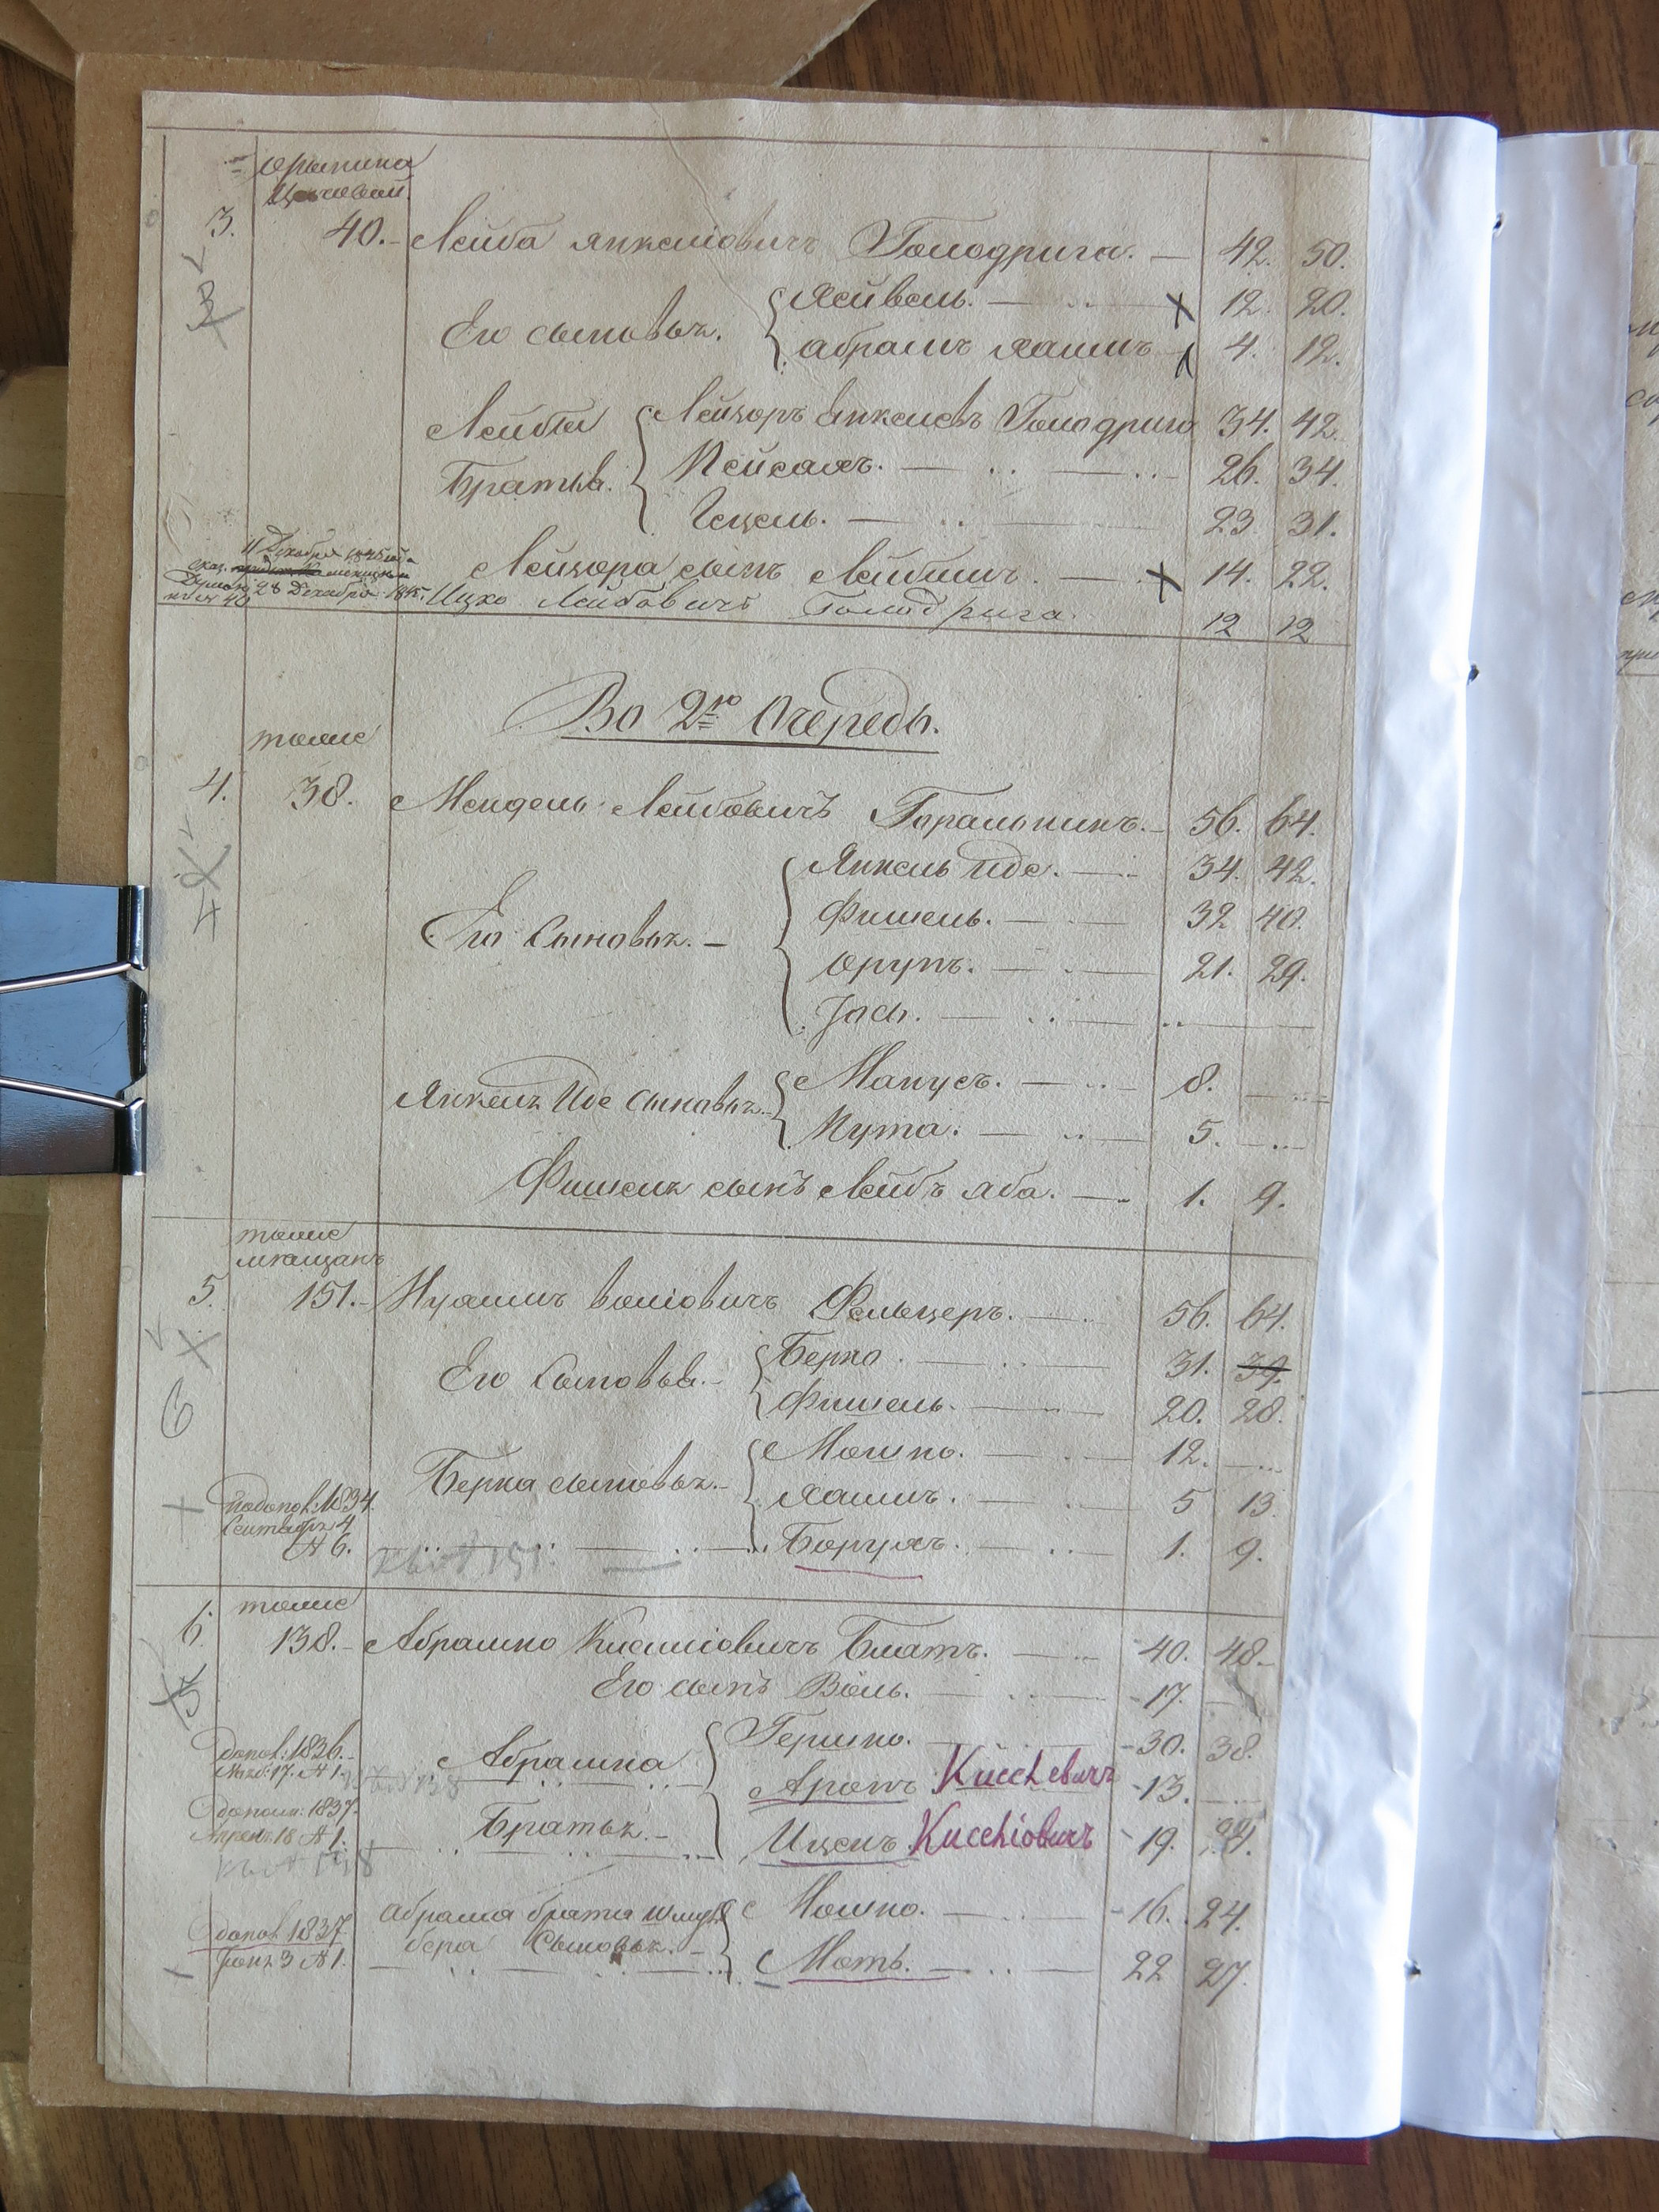 3. 40. Лейба Янкеліовичъ Голодрига. 42. 50.
Его сыновья. Лейвель. 12. 20.
Абрамъ Хаимъ 4. 12.
Лейбы Лейзоръ Янкелевъ Голодрига 34. 42.
Братья. Пейсахъ. 26. 34.
Гецель. 23 31.
11 Декабря 1845
Лейзора сынъ Лейбишъ. 14. 22.
28 Декабря 1845.
Ицко Лейбовичъ Голодрига. 12 12
Во 2ю Очередь.
тоже
4. 38. Мендель Лейбовичъ Горальникъ. 56. 64.
Янкель Иде. 34. 42.
Его Сыновья. Фишель. 32 40.
Орунъ. 21. 29.
Іось.
Янкеля Иде сыновья. Манусъ. 8.
Нута. 5.
Фишеля сынъ Лейбъ Аба. 1. 9.
тоже
мещанъ
5. 151. Нухимъ Воліовичъ Фельцеръ. 56. 64.
Его Сыновья. Берко. 31. 39.
Фишель. 20. 28.
6
Берка сыновья. Мошко. 12.
Хаимъ. 5 13.
по допол: 1834.
Сентября 4
№ 6. Борухъ. 1. 9.
тоже
6. 138. Абрашко Кисиліовичъ Блатъ. 40. 48.
5 Его сынъ Воль. 17.
Абрашка Гершко. 30. 38.
допол: 1836.
17. № 1. Аронъ Кисилевичъ 13.
допол: 1837.
Апреля 18 № 1. Братья. Ицекъ Кисиліовичъ 19.
Абрашка брата Шмуль Мошко. 16. 24.
допол. 1837.
бера Сыновья. Моть. 22 27.
3 № 1.